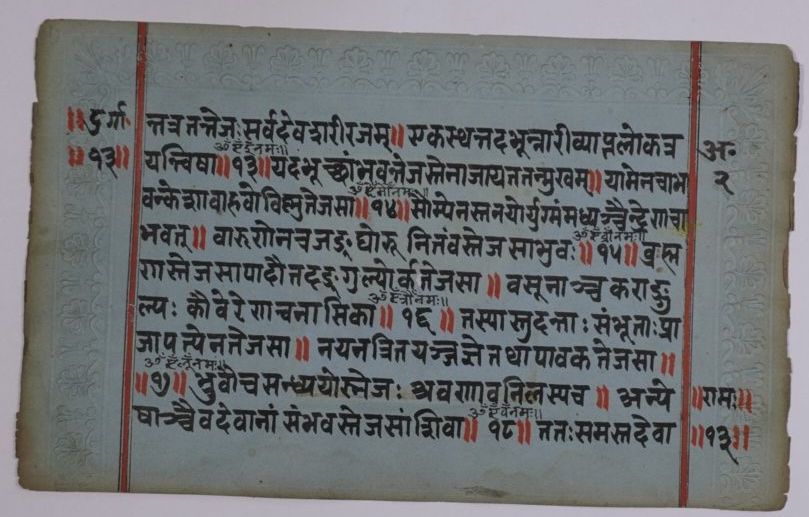 ॥दुर्गा॰
॥१३॥
न्तत्रतत्तेजःसर्वदेवशरीरजम्॥ एकस्थन्तदभून्नारीव्याप्तलोकत्र
यन्त्विषा॥१३॥यदभूच्छांभवन्तेजस्तेनाजायततन्मुखम्॥ याम्येनचाभ
वन्केशावाहवोविष्णुतेजसा॥१४॥सौम्येनस्तनयोर्युग्मंमध्यञ्चैन्द्रेणचा
भवत्॥ वारुणेनचजङ्घोरू नितंवस्तेजसाभुवः॥१५॥व्रह्म
णस्तेजसापादौतदङ्गुल्योर्कतेजसा॥ वसूनाञ्चकराङ्गु
ल्यः कौवेरेणचनासिका॥ १६॥ तस्यास्तुदन्ताः संभूताःप्रा
जापत्येनतेजसा॥ नयनत्रितयञ्जज्ञेतथापावकतेजसा॥
॥१७॥ भ्रुवौचसन्ध्ययोस्तेजः श्रवणावनिलस्यच॥ अन्ये
षाञ्चैवदेवानां संभवस्तेजसांशिवा॥ १८॥ ततःसमस्तदेवा
अ॰
२
॥रामः॥
॥१३॥